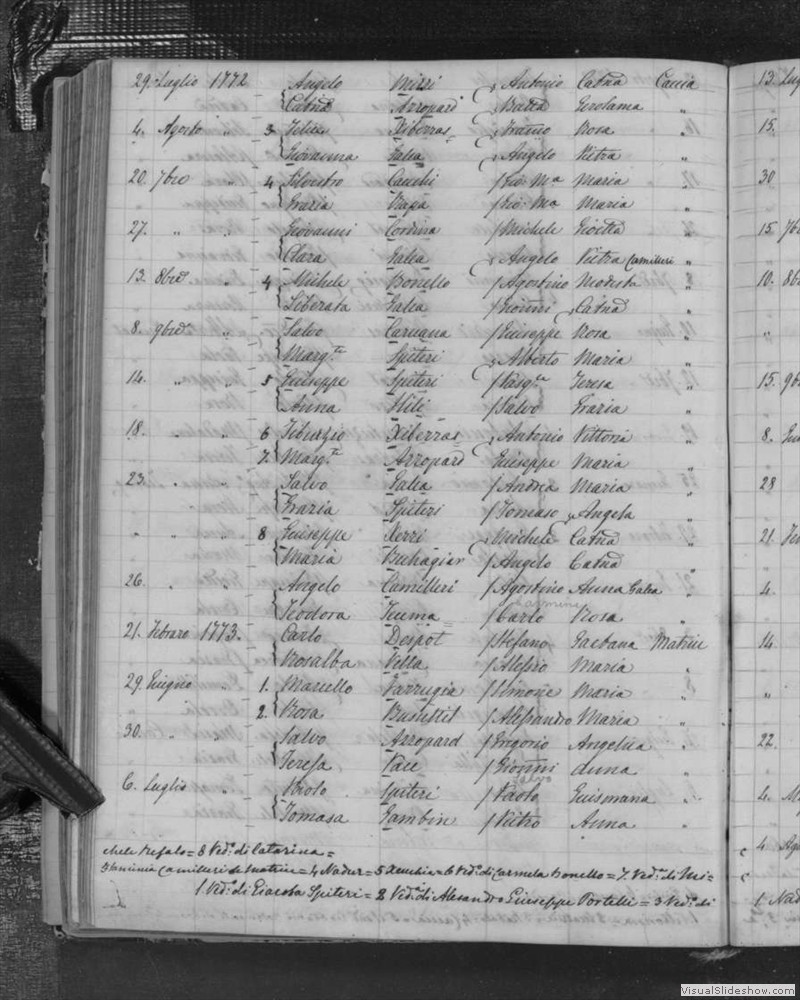 29. Luglio 1772 Angelo Mizzi Antonio Catnd Caccia 13. Lug
Catnd Azzopard Batta Gerolama "
4. Agosto " 3 Felice Xiberras Franco Rosa " 15.
Giovanna Galea Angelo Pietra "
20. 7bre 4 Silvestro Cauchi f Gio: Ma Maria " 30
Grazia Bapa f Gio: Ma Maria "
27. " " Giovanni Cordina f Michele Gioetta " 15. 7b
Clara Galea Angelo Pietra Camilleri "
13. 8bre 4 Michele Bonello f Agostino Modesta " 10. 8b
Liberata Galea f Gionni Catnd "
8. 9bre " Salvo Caruana f Giuseppe Rosa "
Margta Spiteri Alberto Maria "
14. " " 5 Giuseppe Spiteri f Pasqle Teresa " 15. 9b
Anna Hili f Salvo Grazia "
18. " " 6 Tiburzio Xiberras Antonio Vittoria " 8.
7. Margta Azzopard Giuseppe Maria "
23. " " Salvo Galea f Andrea Maria " 28
Grazia Spiteri f Tomaso Angela "
" " " 8 Giuseppe Xerri Michele Catnd " 21.
Maria Buhagiar f Angelo Catnd "
26. " " Angelo Camilleri f Agostino Anna Galea " 4.
Teodora Teuma f Carlo Rosa "
21. Febraro 1773. Carlo Despot f Stefano Gaetana Matrice 14
Rosalba Vella f Alessio Maria "
29. Giugno 1. Marcello Farrugia f Simone Maria "
2. Rosa Busuttil f Alessandro Maria "
30. " " Salvo Azzopard f Gregorio Angelica " 22.
Teresa Pace f Gionni Anna "
Salvo
6. Luglio " Paolo Spiteri f Paolo Guismana " 4.
Tomasa Zambin f Pietro Anna "
chele Refalo = 8 Ved. di Catarina = 4
Camilleri di Matrice = 4 Nadur = 5 Xeuchia = 6 Ved. di Carmela Bonello = 7. Ved. di Mi=
1 Ved. di Giacoba Spiteri = 2 Ved. di Alesandro Giuseppe Portelli = 3 Ved. di 1. Nad
VisualSlideshow.com